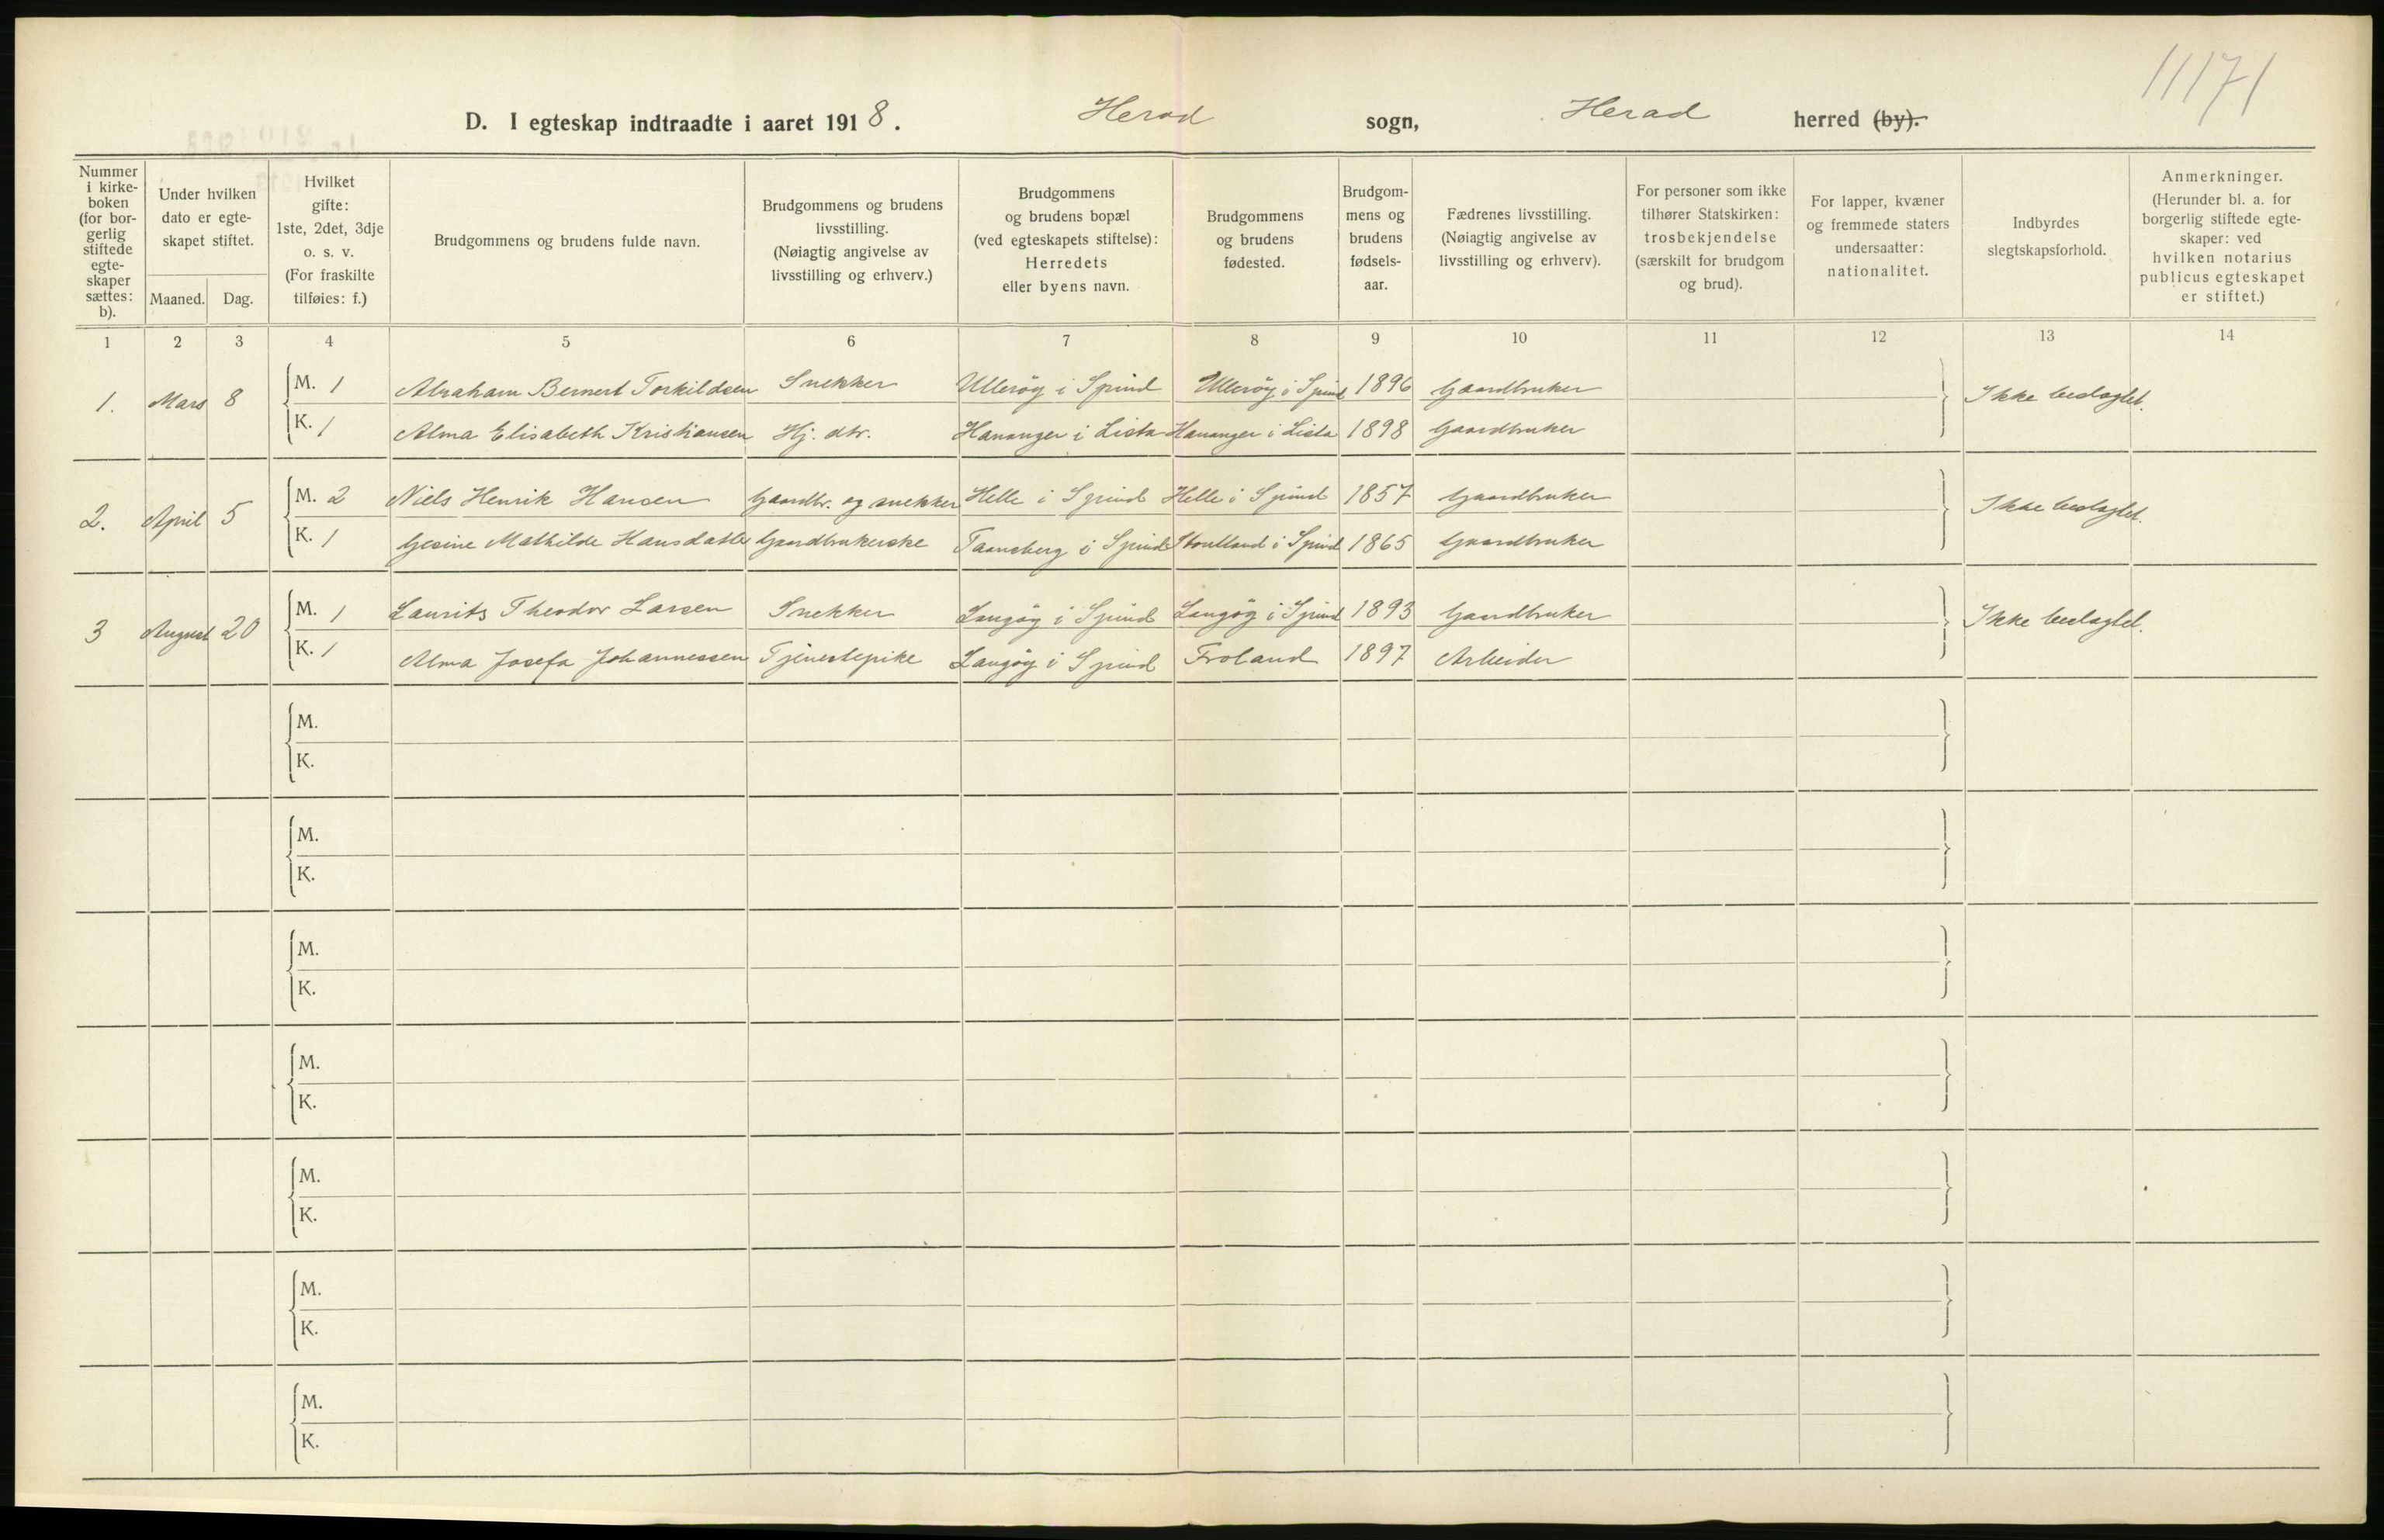 11171
D. I egteskap indtraadte i aaret 1918. Herad sogn, Herad herred (by).
Nummer i kirkeboken (for borgerlig stiftede egteskaper sættes: b).
Under hvilken dato er egteskapet stiftet.
Maaned. Dag.
Hvilket gifte: 1ste, 2det, 3dje o. s. v. (For fraskilte tilføies: f.)
Brudgommens og brudens fulde navn.
Brudgommens og brudens livsstilling. (Nøiagtig angivelse av livsstilling og erhverv.)
Brudgommens og brudens bopæl (ved egteskapets stiftelse): Herredets eller byens navn.
Brudgommens og brudens fødested.
Brudgommens og brudens fødselsaar.
Fædrenes livsstilling. (Nøiagtig angivelse av livsstilling og erhverv).
For personer som ikke tilhører Statskirken: trosbekjendelse (særskilt for brudgom og brud).
For lapper, kvæner og fremmede staters undersaatter: nationalitet.
Indbyrdes slegtskapsforhold.
Anmerkninger. (Herunder bl. a. for borgerlig stiftede egteskaper: ved hvilken notarius publicus egteskapet er stiftet.)
1 2 3 4 5 6 7 8 9 10 11 12 13 14
1. Mars 8 M. 1 Abraham Bernert Torkildsen Snekker Ullerøy i Spind Ullerøy i Spind 1896 Gaardbruker Ikke beslagtet.
K. 1 Alma Elisabeth Kristiansen Hj. dtr. Hananger i Lista Hananger i Lista 1898 Gaardbruker
2. April 5 M. 2 Niels Henrik Hansen Gaardbr. og snekker Helle i Spind Helle i Spind 1857 Gaardbruker Ikke beslagtet.
K. 1 Gesine Mathilde Hansdatter Gaardbrukerske i Spind i Spind 1865 Gaardbruker
3 August 20 M. 1 Laurits Theodor Larsen Snekker Langøy i Spind Langøy i Spind 1893 Gaardbruker Ikke beslagtet.
K. 1 Alma Josefa Johannessen Tjenestepike Langøy i Spind Froland 1897 Arbeider
M.
K.
M.
K.
M.
K.
M.
K.
M.
K.
M.
K.
M.
K.